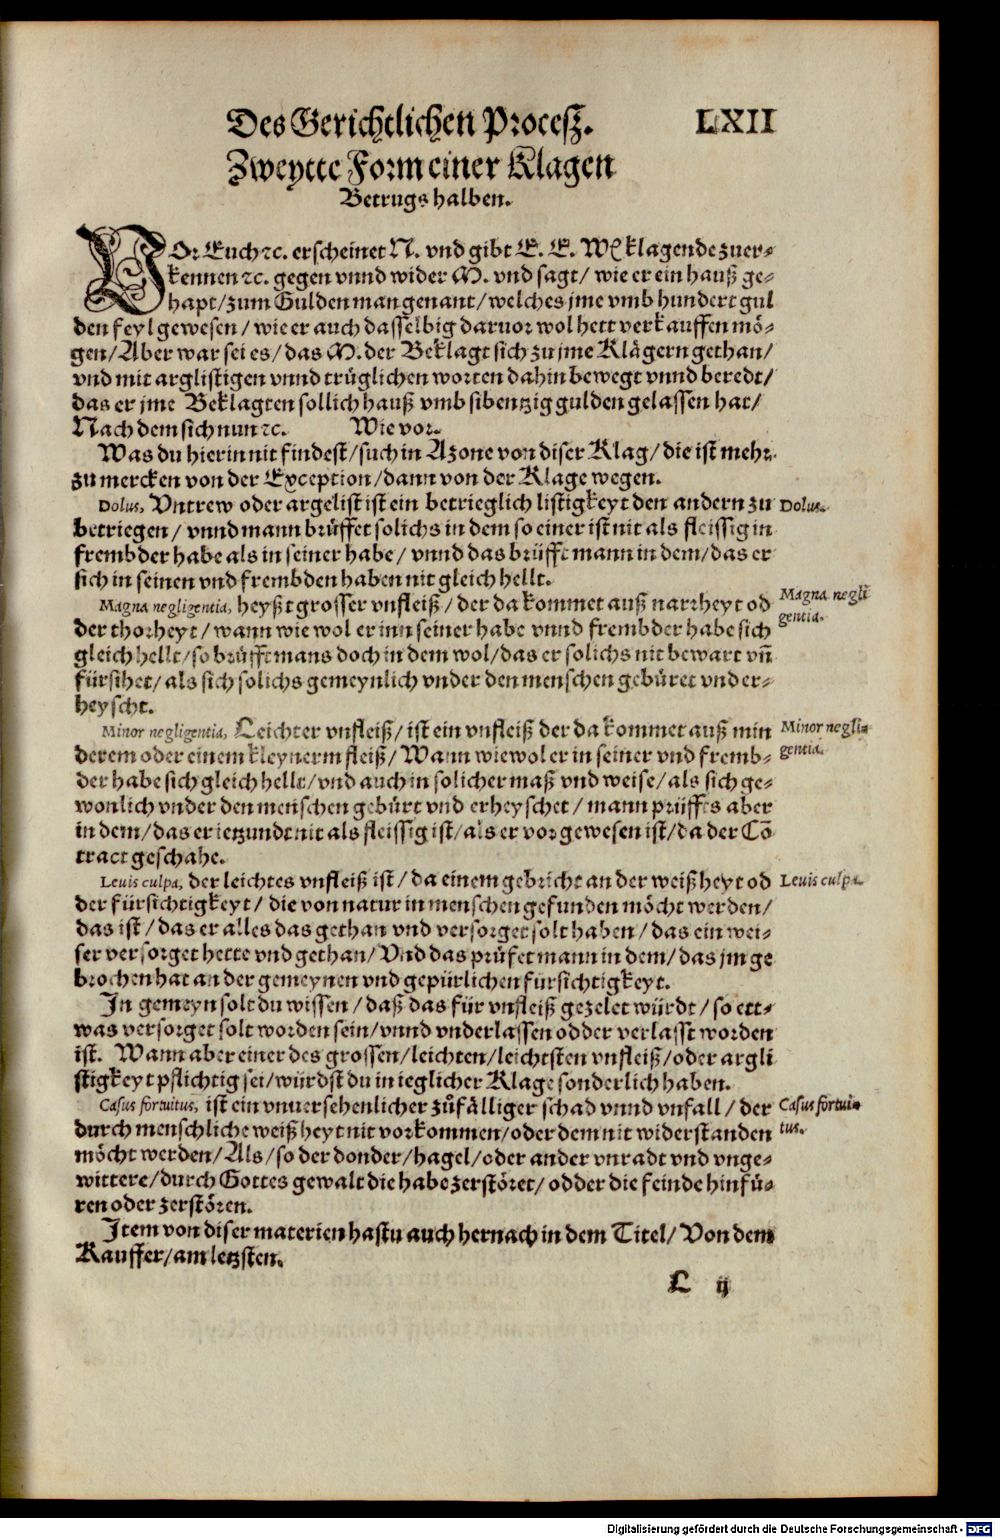 Des Gerichtlichen Procesz. LXII
Zweytte Form einer Klagen
Betrugs halben.
VOr Euch ꝛc. erscheinet N. vnd gibt E. E. W klagende zuer⸗
kennen ꝛc. gegen vnnd wider M. vnd sagt / wie er ein hauß ge⸗
hapt / zum Gulden man genant / welches jme vmb hundert gul
den feyl gewesen / wie er auch dasselbig daruor wol hett verkauffen mö⸗
gen / Aber war sei es / das M. der Beklagt sich zu jme Klägern gethan /
vnd mit arglistigen vnnd trüglichen worten dahin bewegt vnnd beredt /
das er jme Beklagten sollich hauß vmb sibentzig gulden gelassen hat /
Nach dem sich nun ꝛc. Wie vor.
Was du hierin nit findest / such in Azone von diser Klag / die ist mehr
zu mercken von der Exception / dann von der Klage wegen.
Dolus, Vntrew oder argelist ist ein betrieglich listigkeyt den andern zu Dolus.
betriegen / vnnd mann brüffet solichs in dem so einer ist nit als fleissig in
frembder habe als in seiner habe / vnnd das brüfft mann in dem / das er
sich in seinen vnd frembden haben nit gleich hellt.
Magna negligentia, heyßt grosser vnfleiß / der da kommet auß narrheyt od Magna negli
der thorheyt / wann wie wol er inn seiner habe vnnd frembder habe sich gentia.
gleich hellt / so brüfft mans doch in dem wol / das er solichs nit bewart vñ
fürsihet / als sich solichs gemeynlich vnder den menschen gebüret vnd er⸗
heyscht.
Minor negligentia, Leichter vnfleiß / ist ein vnfleiß der da kommet auß min Minor negli⸗
derem oder einem kleynerm fleiß / Wann wiewol er in seiner vnd fremb⸗ gentia.
der habe sich gleich hellt / vnd auch in solicher maß vnd weise / als sich ge⸗
wonlich vnder den menschen gebürt vnd erheyschet / mann prüffts aber
in dem / das er ietzundt nit als fleissig ist / als er vor gewesen ist / da der Cõ
tract geschahe.
Leuis culpa, der leichtes vnfleiß ist / da einem gebricht an der weißheyt od Leuis culpa.
der fürsichtigkeyt / die von natur in menschen gefunden möcht werden /
das ist / das er alles das gethan vnd versorget solt haben / das ein wei⸗
ser versorget hette vnd gethan / Vnd das prüfet mann in dem / das jm ge
brochen hat an der gemeynen vnd gepürlichen fürsichtigkeyt.
In gemeyn solt du wissen / daß das für vnfleiß gezelet würdt / so ett⸗
was versorget solt worden sein / vnnd vnderlassen odder verlasst worden
ist. Wann aber einer des grossen / leichten / leichtsten vnfleiß / oder argli
stigkeyt pflichtig sei / würdst du in ieglicher Klage sonderlich haben.
Casus fortuitus, ist ein vnuersehenlicher zůfälliger schad vnnd vnfall / der Casus fortui⸗
durch menschliche weißheyt nit vorkommen / oder dem nit widerstanden tus.
möcht werden / Als / so der donder / hagel / oder ander vnradt vnd vnge⸗
wittere / durch Gottes gewalt die habe zerstöret / odder die feinde hinfů⸗
ren oder zerstören.
Item von diser materien hastu auch hernach in dem Titel / Von dem
Kauffer / am letzsten.
L ij
Digitalisierung gefördert durch die Deutsche Forschungsgemeinschaft - DFG